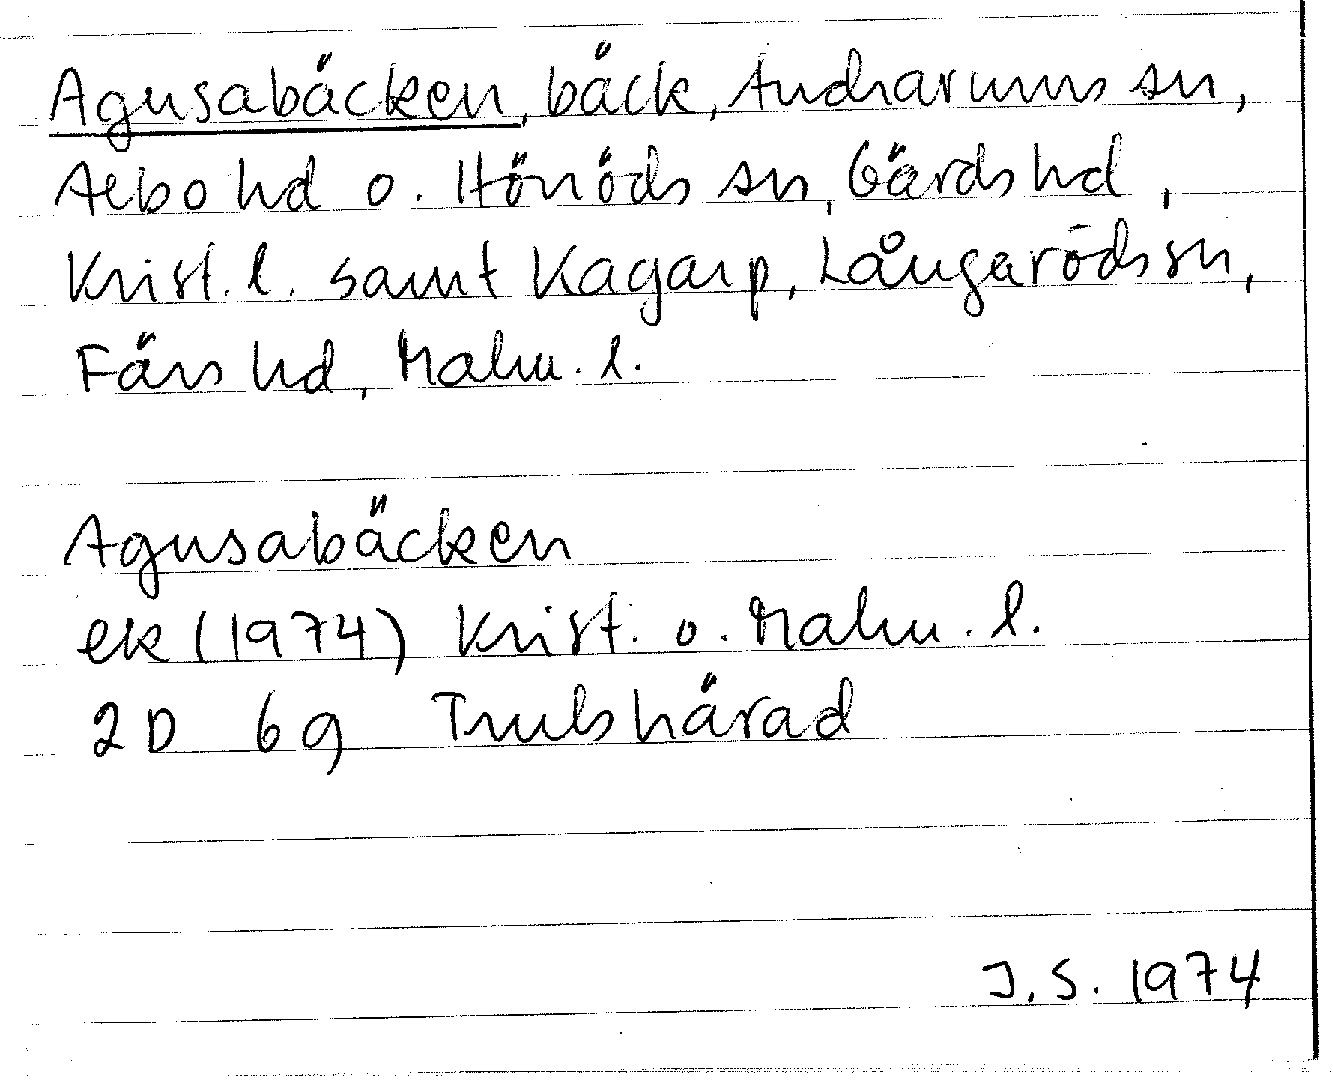 Agusabäcken, bäck, Andrarums sn,
Albo hd o. Hörröds sn, Gärds hd,
Krist. l. samt Kagarp, Långaröds sn,
Färs hd, Malm. l.
Agusabäcken
ek (1974) Krist. o. Malm. l.
2D 6g Trulshärad
J.S. 1974